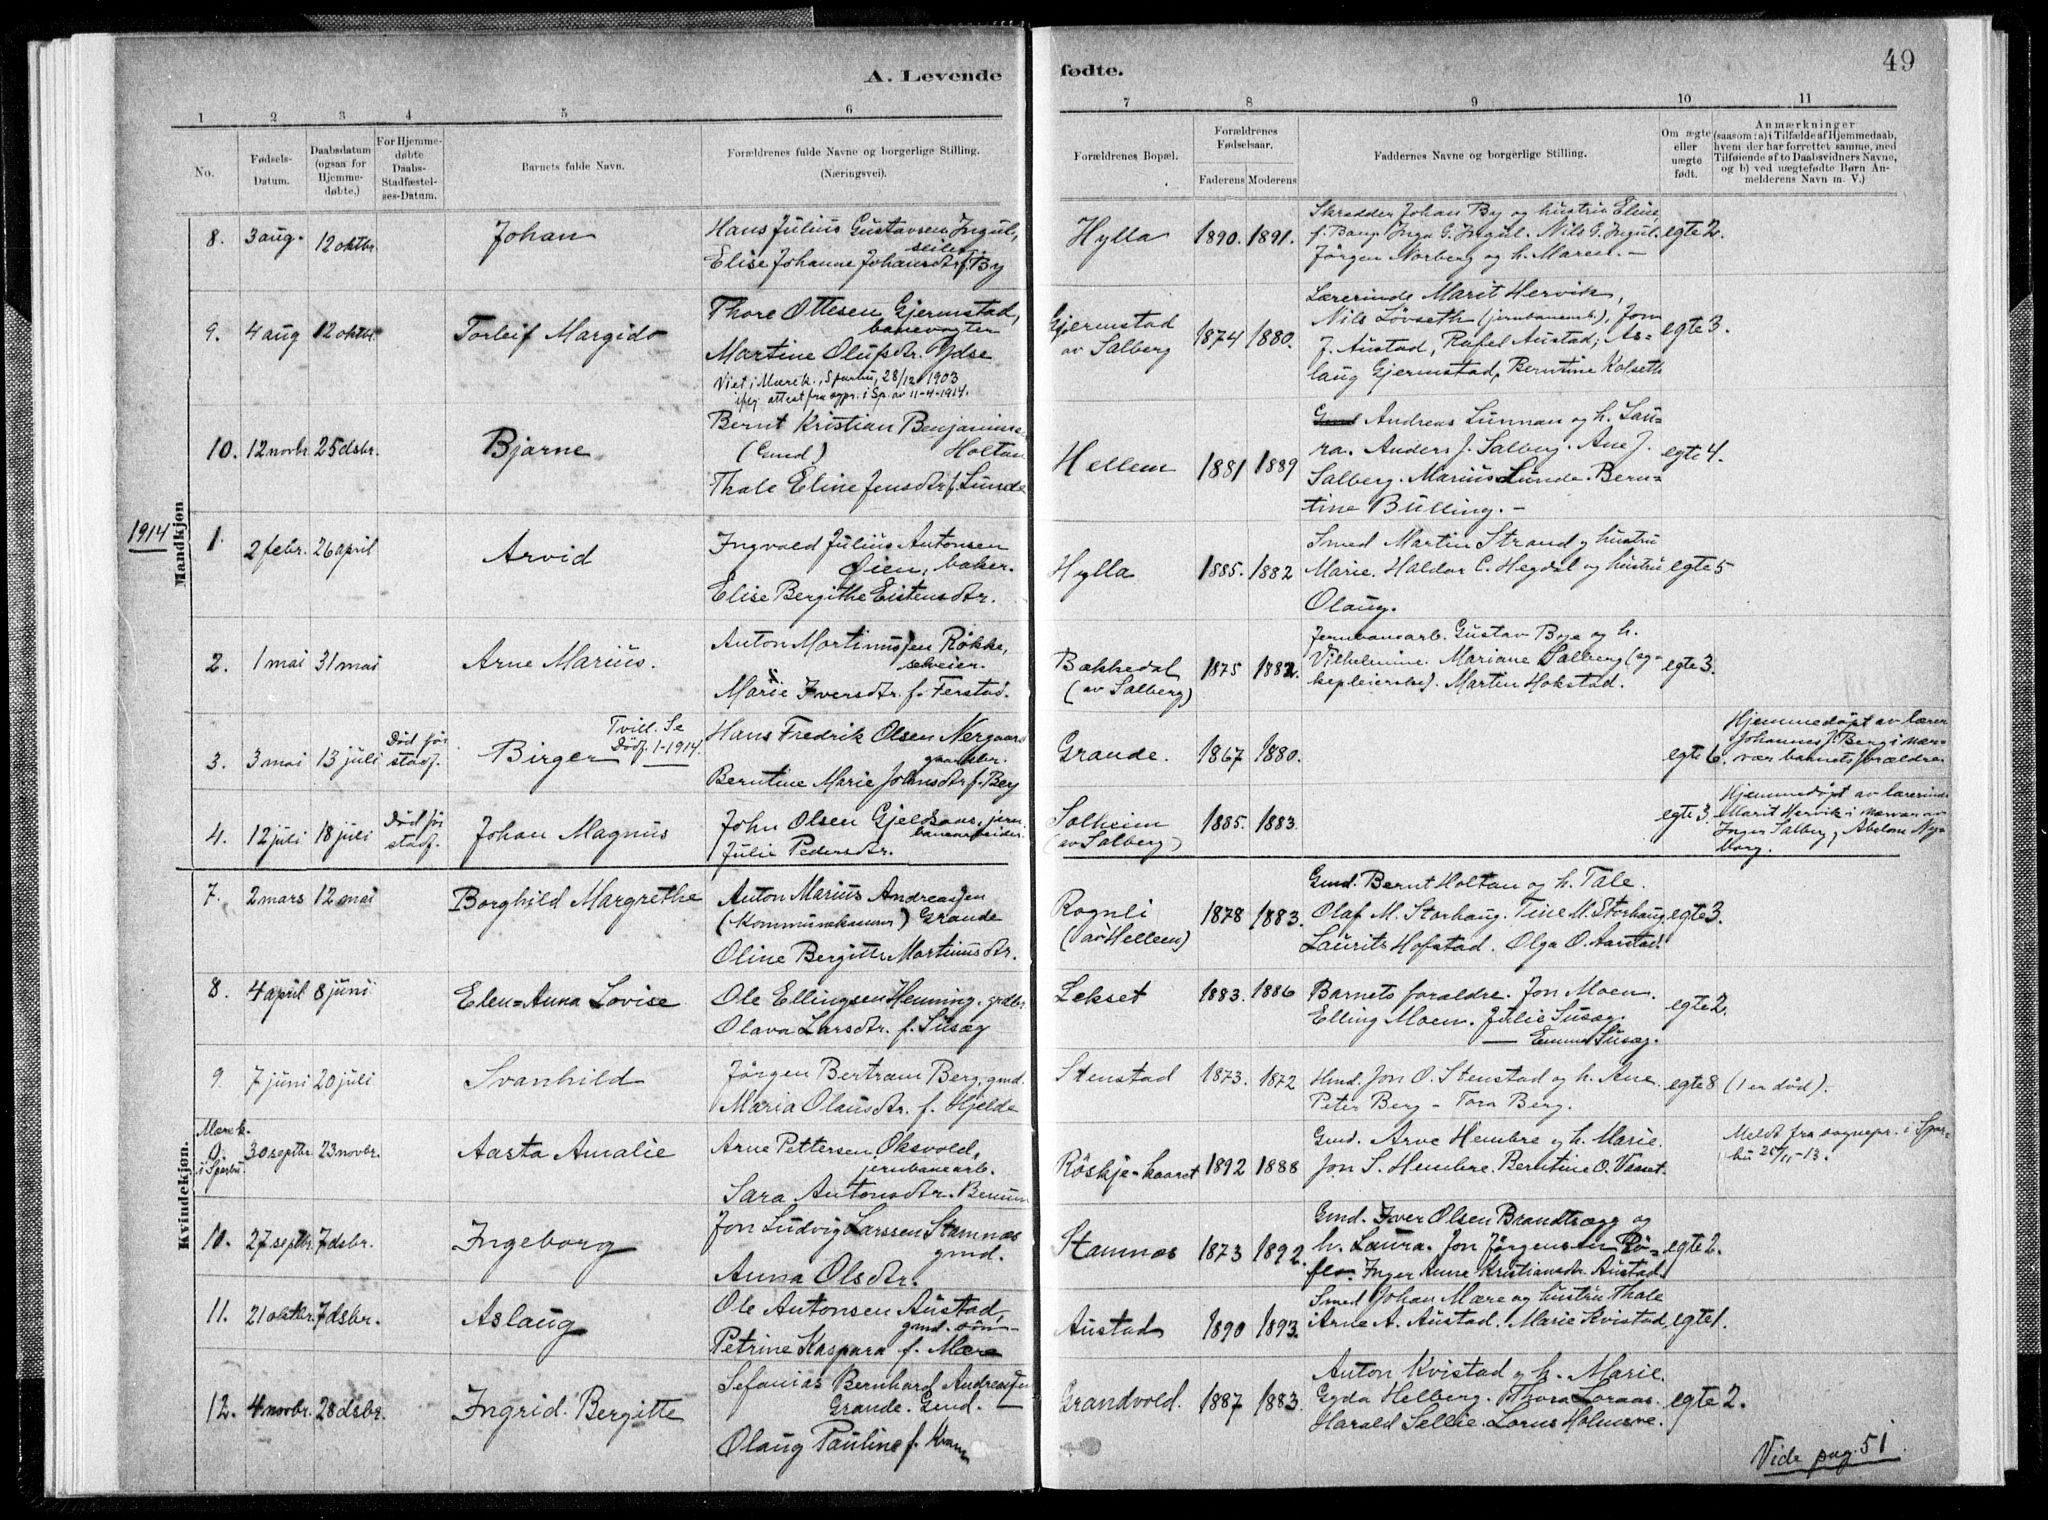 A. Levende
fødte.
49
1 2 3 4 5 6 7 8 9 10 11
No.
Fødsels-Datum.
Daabsdatum (ogsaa for Hjemmedøbte.)
For Hjemmedøbte Daabs-Stadfæstelses-Datum.
Barnets fulde Navn.
Forældrenes fulde Navne og borgerlige Stilling. (Næringsvei).
Forældrenes Bopæl.
Forældrenes Fødselsaar.
Faderens Moderens
Faddernes Navne og borgerlige Stilling.
Om ægte eller uægte født.
Anmærkninger
(saasom: a) i Tilfælde af Hjemmedaab,
hvem der har forrettet samme, med
Tilføiende af to Daabsvidners Navne,
og b) ved uægtefødte Børn Anmelderens Navn m. V.)
Mandkjøn
8. 3 aug. 12 oktbr. Johan
Hans Julius Gustavsen Ingul,
Elise Johanne Johansdtr. f. By
Hylla 1890. 1891.
Skredder Johan By og hustru Eline,
f. Bang. Inga G. Ingul. Nils G. Ingul.
Jørgen Norberg og h. Maren. –
egte 2.
9. 4 aug 12 oktbr. Torleif Margido
Thore Ottesen Gjermstad,
banevogter
Martine Olufsdtr. Ydse
Viet i Mærek., Sparbu, 28/12 1903
iflg. attest fra sogpr. i Sp. av 11-4-1914.
Gjermstad
av Salberg
1874 1880.
Lærerinde Marit Hervik,
Nils Løvseth (jernbanemb.), Jon
J. Austad, Rafel Austad; As-
laug Gjermstad, Berntine Kolseth
egte 3.
10. 12 novbr. 25 dsbr. Bjarne
Bernt Kristian Benjaminsen
(Gmd) Holtan
Thale Eline Jensdtr. f. Lunde
Hellem 1881 1889
Andreas Lunnan og h. Lau-
ra. Anders J. Salberg. Ane J.
Salberg. Marius Lunde. Bern-
tine Bulling. –
egte 4.
1914
1. 2 febr. 26 april Arvid
Ingvald Julius Antonsen
Øien, baker.
Elise Bergithe Eistensdtr.
Hylla 1885. 1882
Smed Martin Strand og hustru
Marie. Haldor C. Hegdal og hustru
Olaug.
egte 5
2. 1 mai 31 mai Arne Marius.
Anton Martinussen Røkke,
selveier.
Marie Iversdtr. f. Ferstad.
Bækkedal
(av Salberg)
1875 1882.
Jernbanearb. Gustav Bye og h.
Vilhelmine. Mariane Salberg (sy-
kepleierske). Martin Hokstad.
egte 3.
3. 3 mai 13 juli Død før stadf. Birger
Tvill. Se
Dødf. 1-1914.
Hans Fredrik Olsen Nergaard
gaardbr.
Berntine Marie Johnsdtr. f. Berg
Grande. 1867 1880.
egte 6.
Hjemmedøpt av lærer
Johannes J. Berg i nær-
vær barnets forældre
4. 12 juli 18 juli Død før stadf. Johan Magnus
John Olsen Gjeldsaas, jern-
banearbeider.
Julie Pedersdtr.
Solheim
(av Salberg)
1885. 1883.
egte 3.
Hjemmedøpt av lærerinde
Marit Hervik i nærvær av
Inger Salberg, Abelone Ny-
borg.
Kvindekjøn.
7. 2 mars 12 mai Borghild Margrethe
Anton Marius Andreassen
(kommunekasserer) Grande
Oline Bergitte Martinusdtr.
Rognli
(av Hellem)
1878 1883.
Gmd. Bernt Holtan og h. Tale.
Olaf M. Storhaug. Tine M. Storhaug.
Laurits Hofstad. Olga O. Aarstad.
egte 3.
8. 4 april 8 juni Elen-Anna Lovise
Ole Ellingsen Henning, grdbr.
Olava Larsdtr. f. Susæg
Lekset 1883. 1886
Barnets forældre. Jon Moen.
Elling Moen. Julie Susæg.
— Emma Susæg.
egte 2.
9. 7 juni 20 juli Svanhild
Jørgen Bertram Berg, gmd.
Maria Olausdtr. f. Hjelde
Stenstad 1873. 1872
Hmd. Jon O. Stenstad og h. Ane.
Peter Berg – Tora Berg.
egte 8 (1 er død).
Mære k. i Sparbu. 9 30 septbr. 23 novbr. Aasta Amalie
Arne Pettersen Oksvold,
jernbanearb.
Sara Antonsdtr. Benum
Röskje-kaaret 1892 1888
Gmd. Arve Hembre og h. Marie.
Jon S. Hembre. Berntine O. Vaaset.
Meldt fra sognepr. i Spar-
bu 25/11-13.
10. 27 septbr. 7 dsbr. Ingeborg
Jon Ludvig Larssen Stamnes
gmd.
Anna Olsdtr.
Stamnes 1873 1892.
Gmd. Iver Olsen Brandtzæg og
h. Laura. Jon Jørgensen Rö-
flo. Inger Anne Kristiansdtr. Austad.
egte 2.
11. 21 oktbr. 7 dsbr. Aslaug
Ole Antonsen Austad,
gmd. søn
Petrine Kaspara f. Mære
Austad 1890 1893.
Smed Johan Mære og hustru Thale
Arne A. Austad. Marie Kvistad.
egte 1.
12. 4 novbr. 28 dsbr. Ingrid Bergitte
Sefanias Bernhard Andreassen
Grande. Gmd.
Olaug Pauline f. Kvam
Grandvold. 1887 1883.
Anton Kvistad og h. Marie.
Gyda Helberg. Thora Loraas.
Harald Sellie. Lorns Holmsve.
egte 2.
Vide pag. 51.